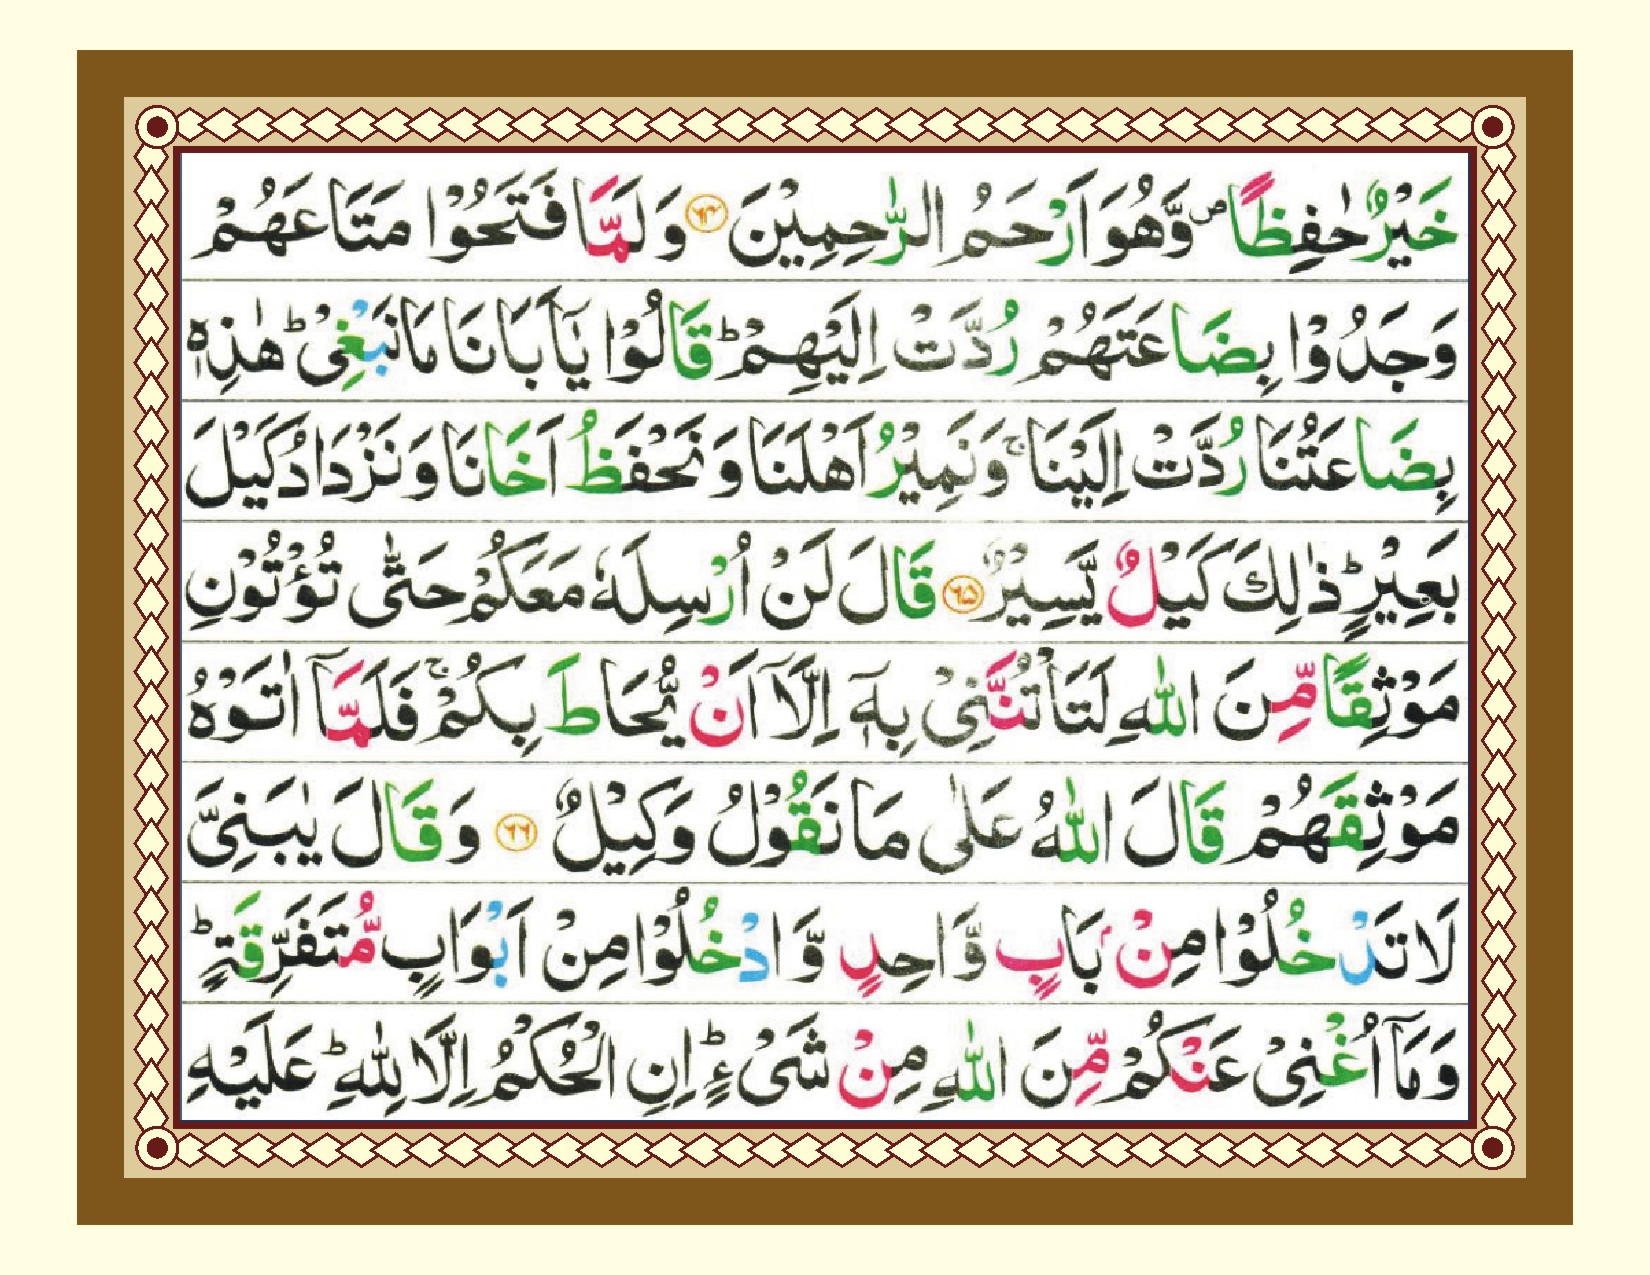 خَيْرٌ حٰفِظًا ۪ وَّهُوَ اَرْحَمُ الرّٰحِمِيْنَ ﴿۶۴﴾ وَلَمَّا فَتَحُوْا مَتَاعَهُمْ
وَجَدُوْا بِضَاعَتَهُمْ رُدَّتْ اِلَيْهِمْ ؕ قَالُوْا يٰۤاَبَانَا مَا نَبْغِىْ ؕ هٰذِهٖ
بِضَاعَتُنَا رُدَّتْ اِلَيْنَا ۚ وَنَمِيْرُ اَهْلَنَا وَنَحْفَظُ اَخَانَا وَنَزْدَادُ كَيْلَ
بَعِيْرٍ ؕ ذٰلِكَ كَيْلٌ يَّسِيْرٌ ﴿۶۵﴾ قَالَ لَنْ اُرْسِلَهٗ مَعَكُمْ حَتّٰى تُؤْتُوْنِ
مَوْثِقًا مِّنَ اللّٰهِ لَتَاْتُنَّنِىْ بِهٖۤ اِلَّاۤ اَنْ يُّحَاطَ بِكُمْ ۚ فَلَمَّاۤ اٰتَوْهُ
مَوْثِقَهُمْ قَالَ اللّٰهُ عَلٰى مَا نَقُوْلُ وَكِيْلٌ ﴿۶۶﴾ وَقَالَ يٰبَنِىَّ
لَا تَدْخُلُوْا مِنْۢ بَابٍ وَّاحِدٍ وَّادْخُلُوْا مِنْ اَبْوَابٍ مُّتَفَرِّقَةٍ ؕ
وَمَاۤ اُغْنِىْ عَنْكُمْ مِّنَ اللّٰهِ مِنْ شَىْءٍ ؕ اِنِ الْحُكْمُ اِلَّا لِلّٰهِ ؕ عَلَيْهِ